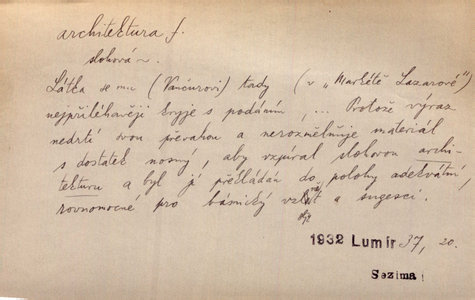 architektura f.
slohová ~.
Látka se mu (Vančurovi) tady (v „Markétě Lazarové")
nejpřiléhavěji kryje s podáním, ... Protože výraz
nedrtí svou převahou a nerozmělňuje materiál
s dostatek nosný, aby vzpíral slohovou archi-
tekturu a byl jí překládán do polohy adekvátní,
rovnomocné pro básnický a sugesci.
1932 Lumír 37, 20.
Sezima